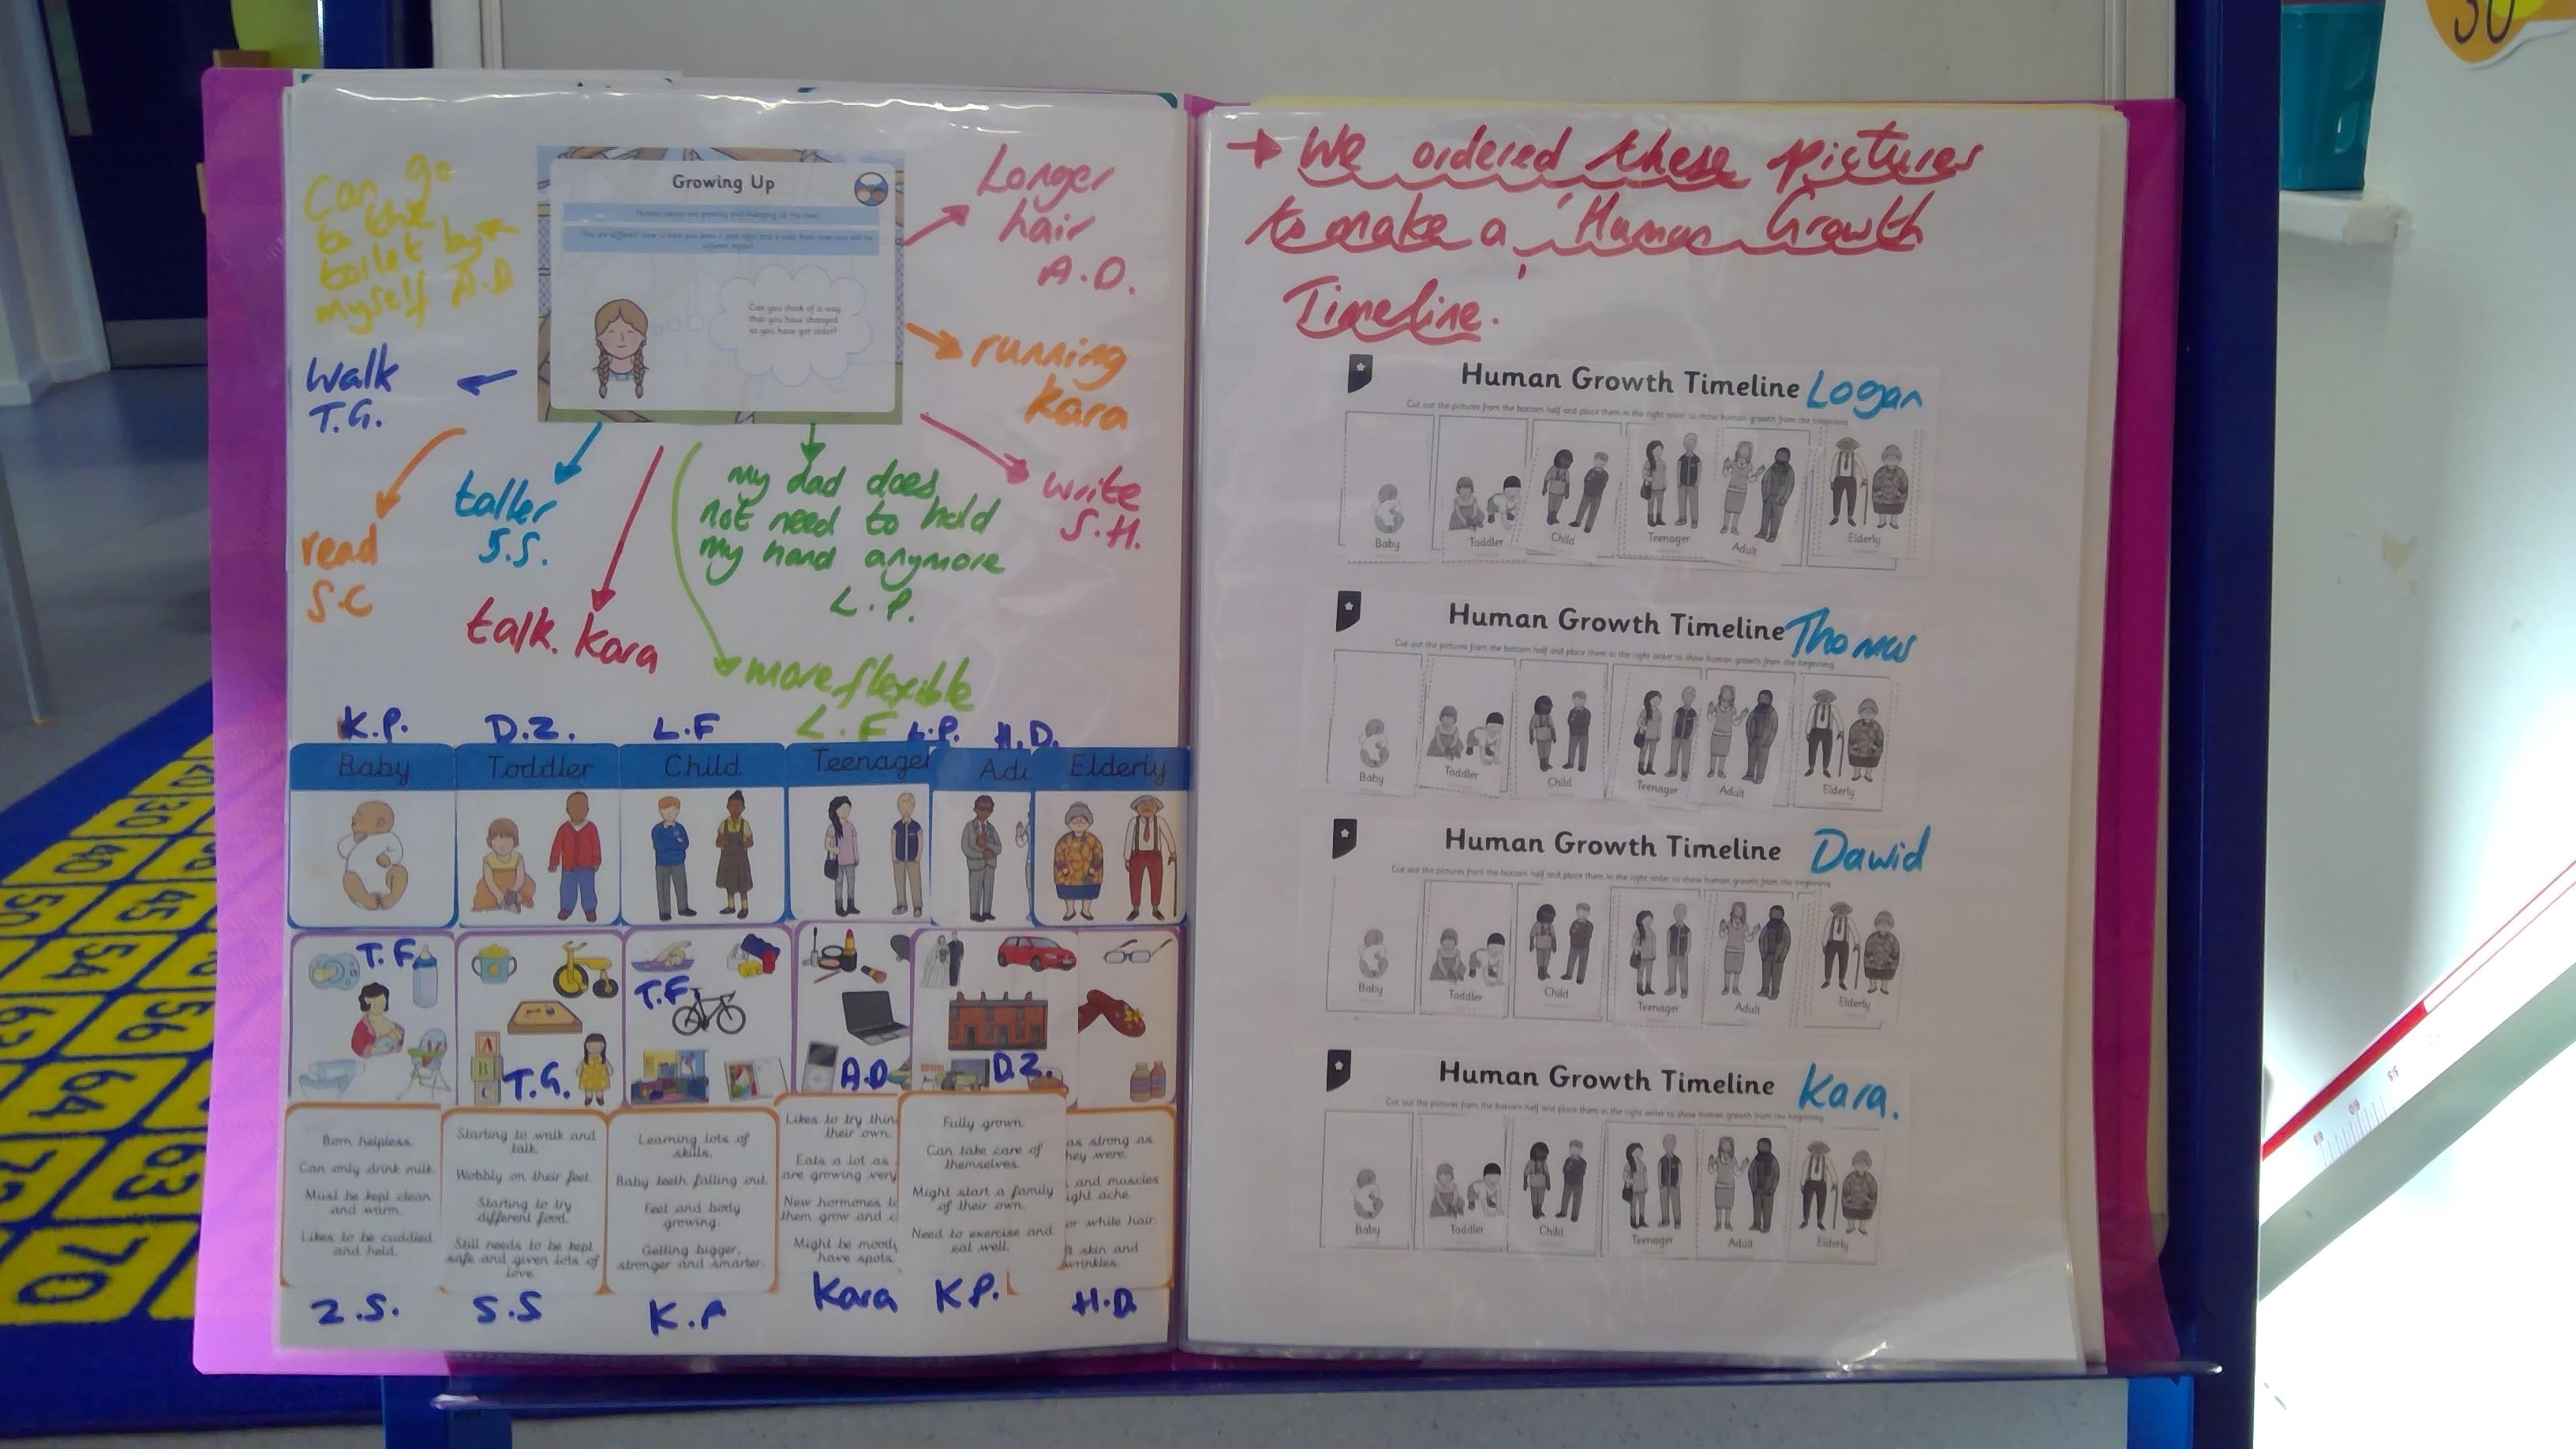 Growing Up
Human beings are growing and changing all the time.
You are different now to how you were a year ago, and a year from now you will be
different again.
Can you think of a way
that you have changed
as you have got older?
Can go
to the
toilet by
myself A.D
Longer
hair
A.D.
running
Kara
write
S.H.
Walk
T.G.
read
S.C
taller
S.S.
talk. Kara
my dad does
not need to hold
my hand anymore
L.P.
more flexible
L.F
K.P.
D.Z.
L.F
L.P.
H.D.
Baby
Toddler
Child
Teenager
Adu
Elderly
T.F
A
B
C
T.G.
T.F.
A.D
D.Z.
Born helpless.
Can only drink milk.
Must be kept clean
and warm.
Likes to be cuddled
and held.
Starting to walk and
talk.
Wobbly on their feet.
Starting to try
different food.
Still needs to be kept
safe and given lots of
love.
Learning lots of
skills.
Baby teeth falling out.
Feet and body
growing.
Getting bigger,
stronger and smarter.
Likes to try thin
their own.
Eats a lot as
are growing very
New hormones
them grow and c
Might be moody
have spots.
Fully grown.
Can take care of
themselves.
Might start a family
of their own.
Need to exercise and
eat well.
as strong as
hey were.
and muscles
ight ache.
or white hair.
t skin and
wrinkles.
Z.S.
S.S
K.P
Kara
K.P.
H.D.
→ We ordered these pictures
to make a 'Human Growth
Timeline.'
Human Growth Timeline Logan
Cut out the pictures from the bottom half and place them in the right order to show human growth from the beginning.
Baby
Toddler
Child
Teenager
Adult
Elderly
Human Growth Timeline Thomas
Cut out the pictures from the bottom half and place them in the right order to show human growth from the beginning.
Baby
Toddler
Child
Teenager
Adult
Elderly
Human Growth Timeline Dawid
Cut out the pictures from the bottom half and place them in the right order to show human growth from the beginning.
Baby
Toddler
Child
Teenager
Adult
Elderly
Human Growth Timeline Kara.
Cut out the pictures from the bottom half and place them in the right order to show human growth from the beginning.
Baby
Toddler
Child
Teenager
Adult
Elderly
30
40
45
50
54
56
63
64
63
70